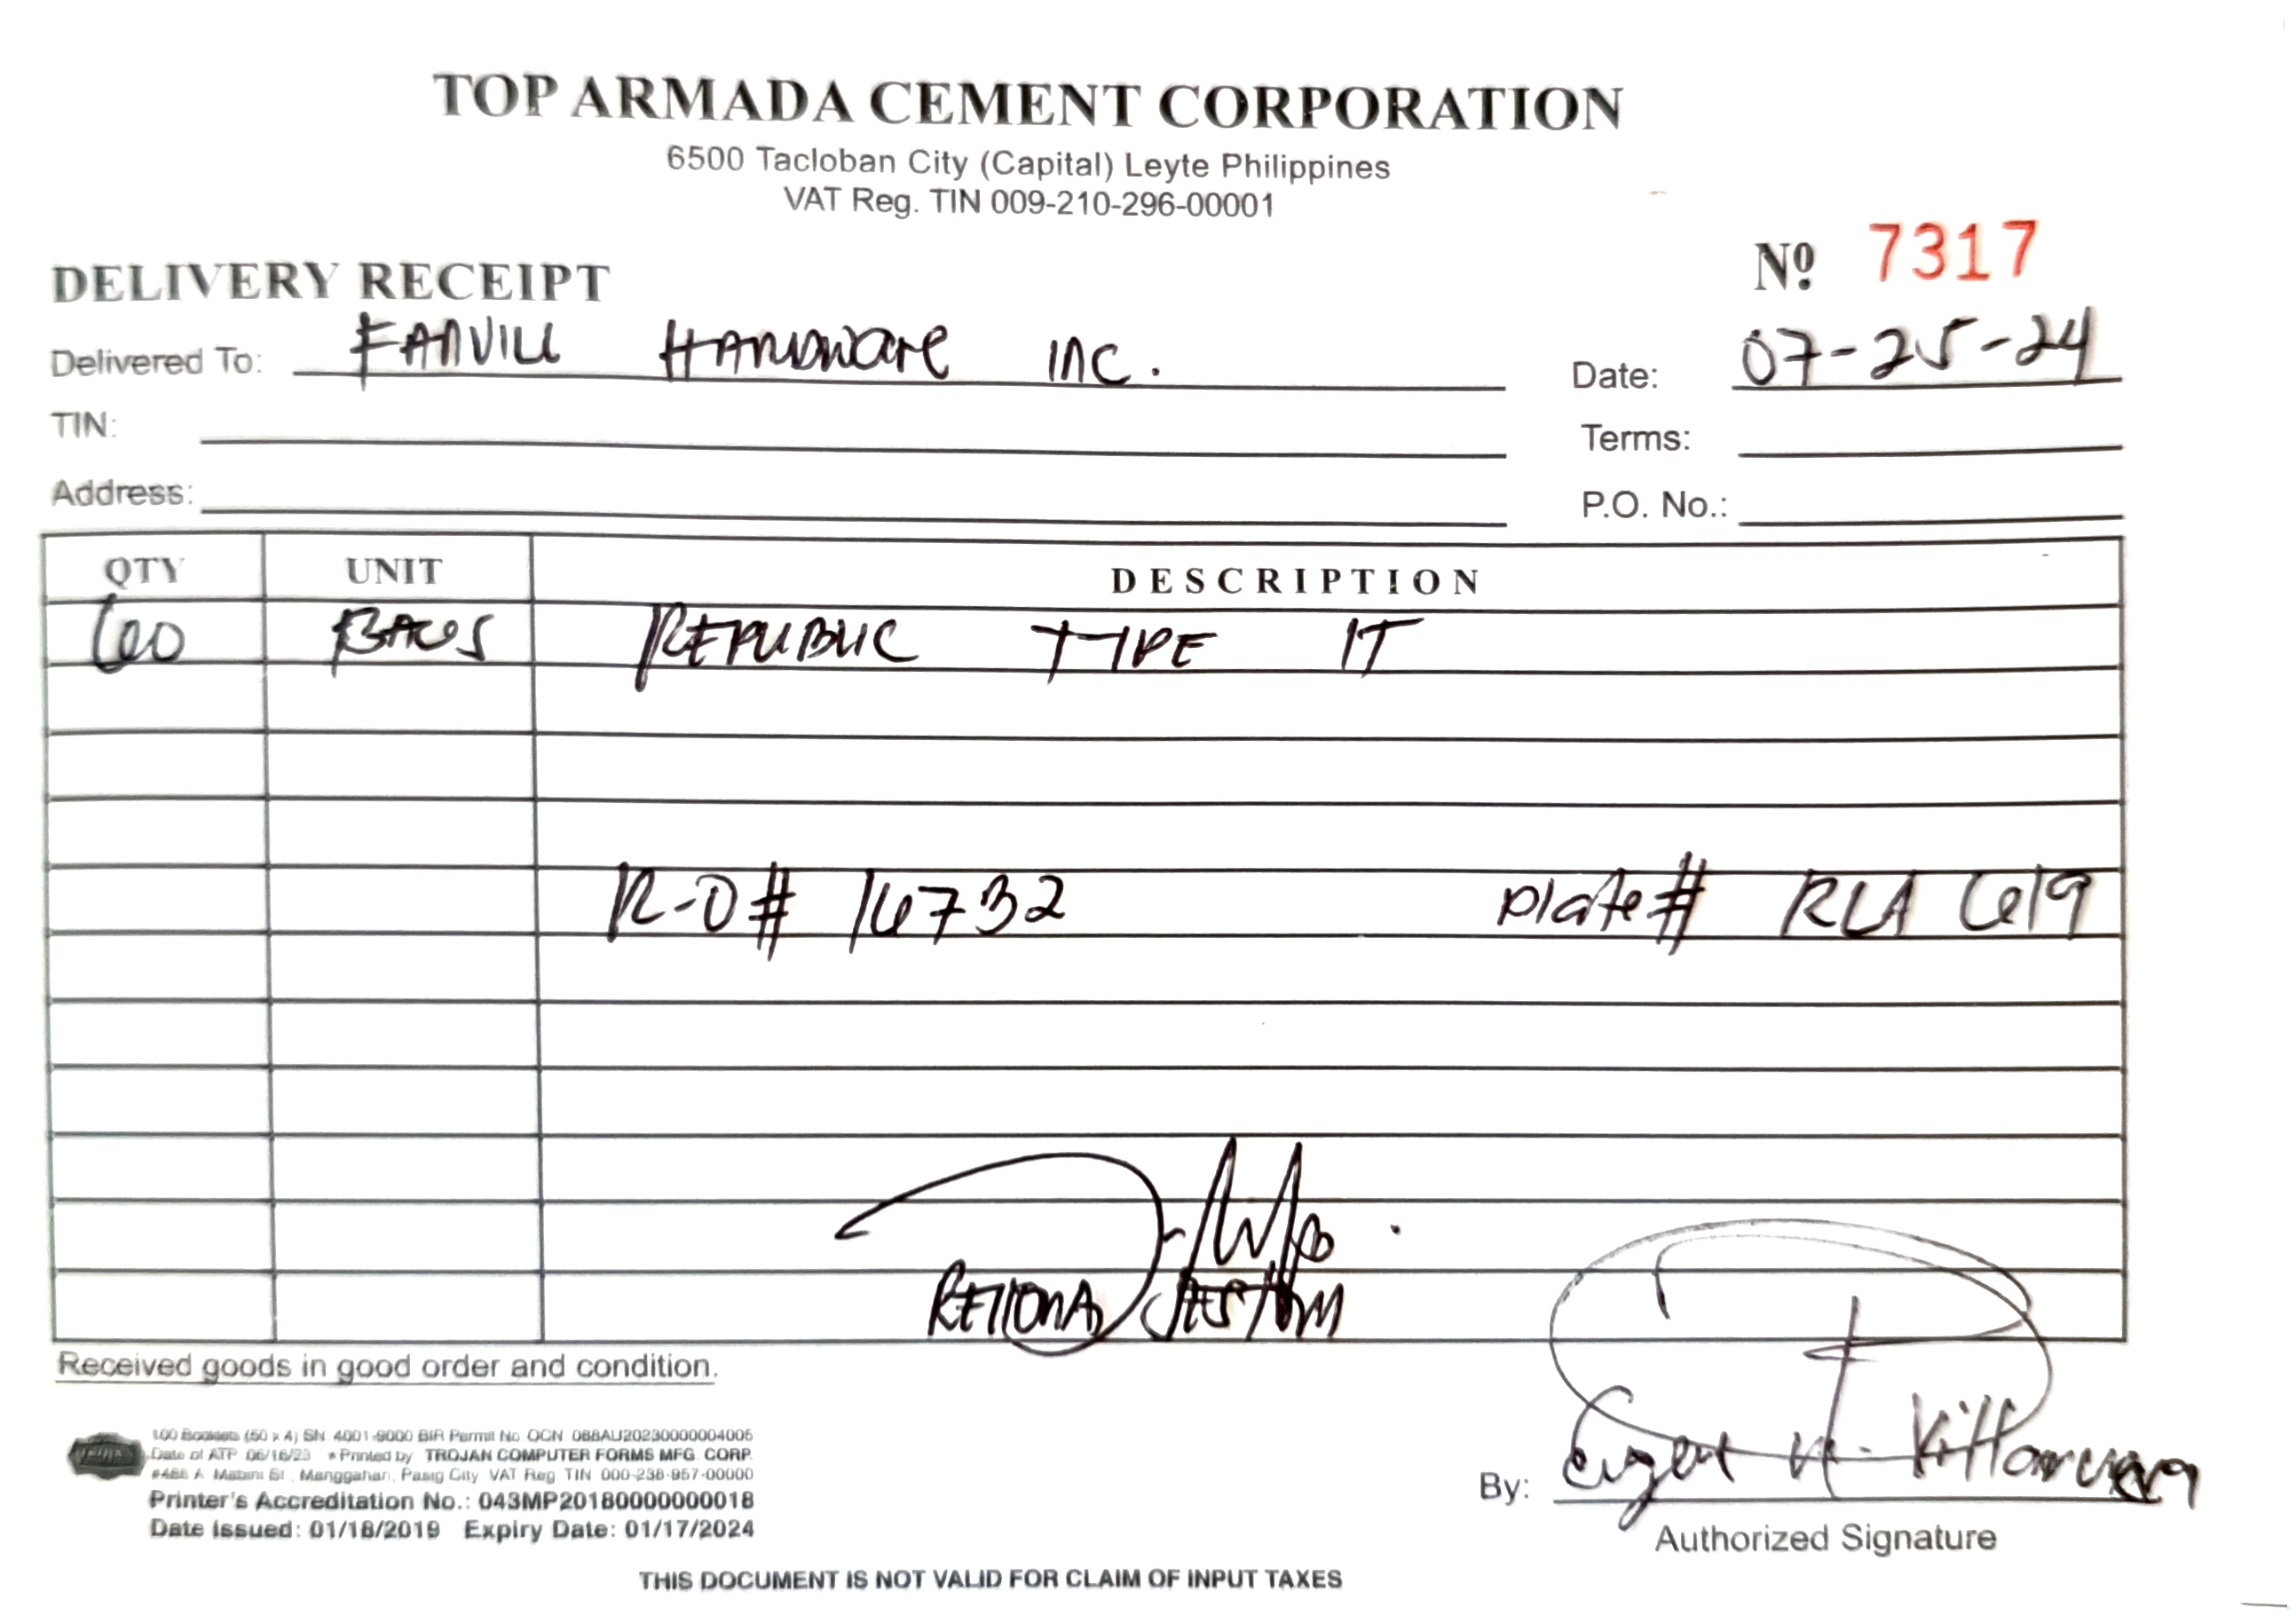 TOP ARMADA CEMENT CORPORATION
6500 Tacloban City (Capital) Leyte Philippines
VAT Reg. TIN 009-210-296-00001
Nº 7317
DELIVERY RECEIPT
Delivered To: FANVILL HARDWARE INC. Date: 07-25-24
TIN: Terms:
Address: P.O. No.:
QTY UNIT DESCRIPTION
600 BAGS REPUBLIC TYPE IT
R-O# 16732 Plate# RLA 619
Received goods in good order and condition.
100 Booklets (50 x 4) SN 4001-9000 BIR Permit No. OCN 088AU20230000004005
Date of ATP 06/16/23 *Printed by TROJAN COMPUTER FORMS MFG. CORP.
#486 A. Mabini St., Manggahan, Pasig City VAT Reg TIN 000-238-957-00000
Printer's Accreditation No.: 043MP20180000000018
Date issued: 01/18/2019 Expiry Date: 01/17/2024
By:
Authorized Signature
THIS DOCUMENT IS NOT VALID FOR CLAIM OF INPUT TAXES